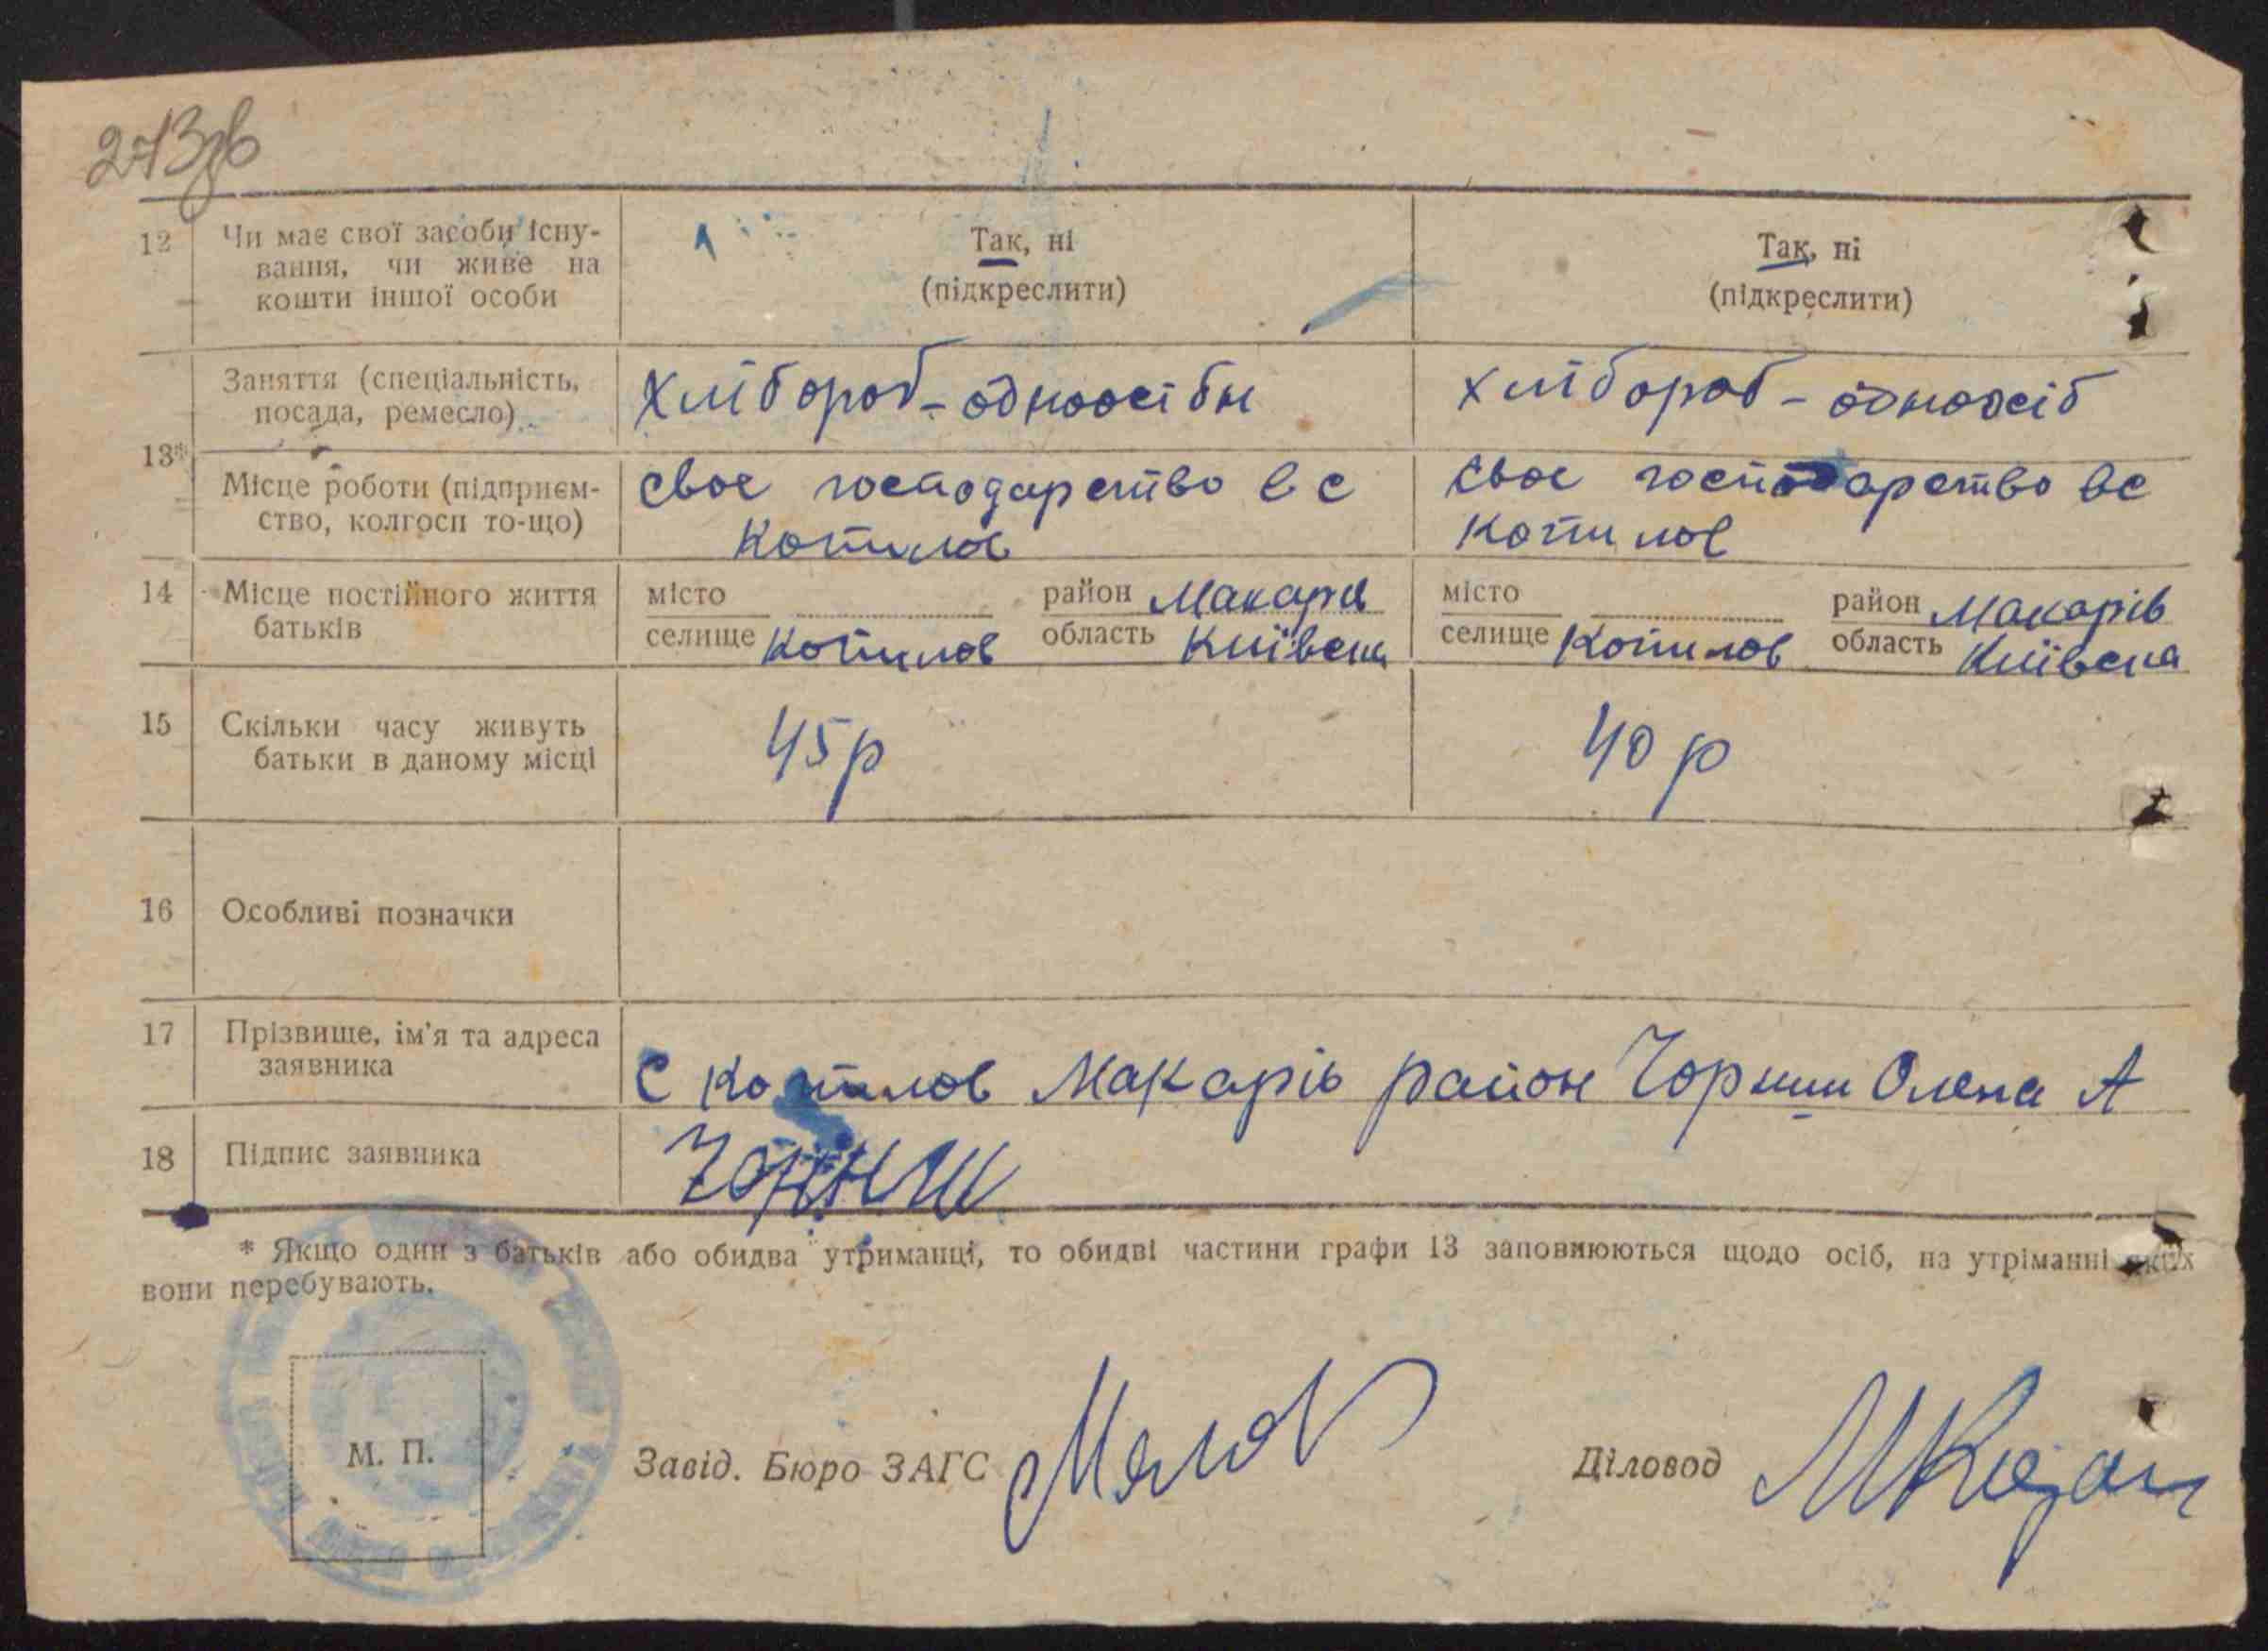 273зв
12 Чи має свої засоби існу-
вання, чи живе на
кошти іншої особи
Так, ні
(підкреслити)
Так, ні
(підкреслити)
13*
Заняття (спеціальність,
посада, ремесло)
Хлібороб-одноосібн
хлібороб-одноосіб
Місце роботи (підприєм-
ство, колгосп то-що)
своє господарство в с
Копилов
своє господарство в с
Копилов
14 Місце постійного життя
батьків
місто район Макарів
селище Копилов область Київськ
місто район Макарів
селище Копилов область Київска
15 Скільки часу живуть
батьки в даному місці
45р
40 р
16 Особливі позначки
17 Прізвище, ім'я та адреса
заявника
С Копилов Макарів район Чорниш Олена А
18 Підпис заявника
Чорниш
* Якщо один з батьків або обидва утриманці, то обидві частини графи 13 заповнюються щодо осіб, на утріманні яких
вони перебувають.
М. П.
Завід. Бюро ЗАГС
Діловод